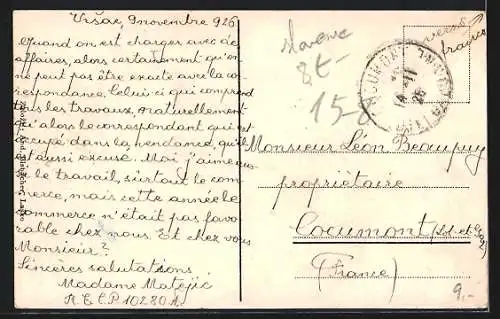 Vršac, 9 novembre 926
Quand on est charger avec de
affaires, alors certainement qu'on
ne peut pas être exacte avec la cor
respondance. Celui-ci qui comprend
tous les travaux, naturellement
qu'alors le correspondant qui est
occupé dans la vendance, qu'il
est aussi excuse. Moi j'aime
le travail, surtout le com
merce, mais cette année le
commerce n'était pas favo
rable chez nous. Et chez vous
Monsieur?
Sincères salutations
Madame Matejić
A.E.C.P 10280A.
Slovene
8t-
15-
vers
franco
COCUMONT
26
Monsieur Léon Beaupuy
propriétaire
Cocumont (Lot-et-Gar.)
(France)
9,-